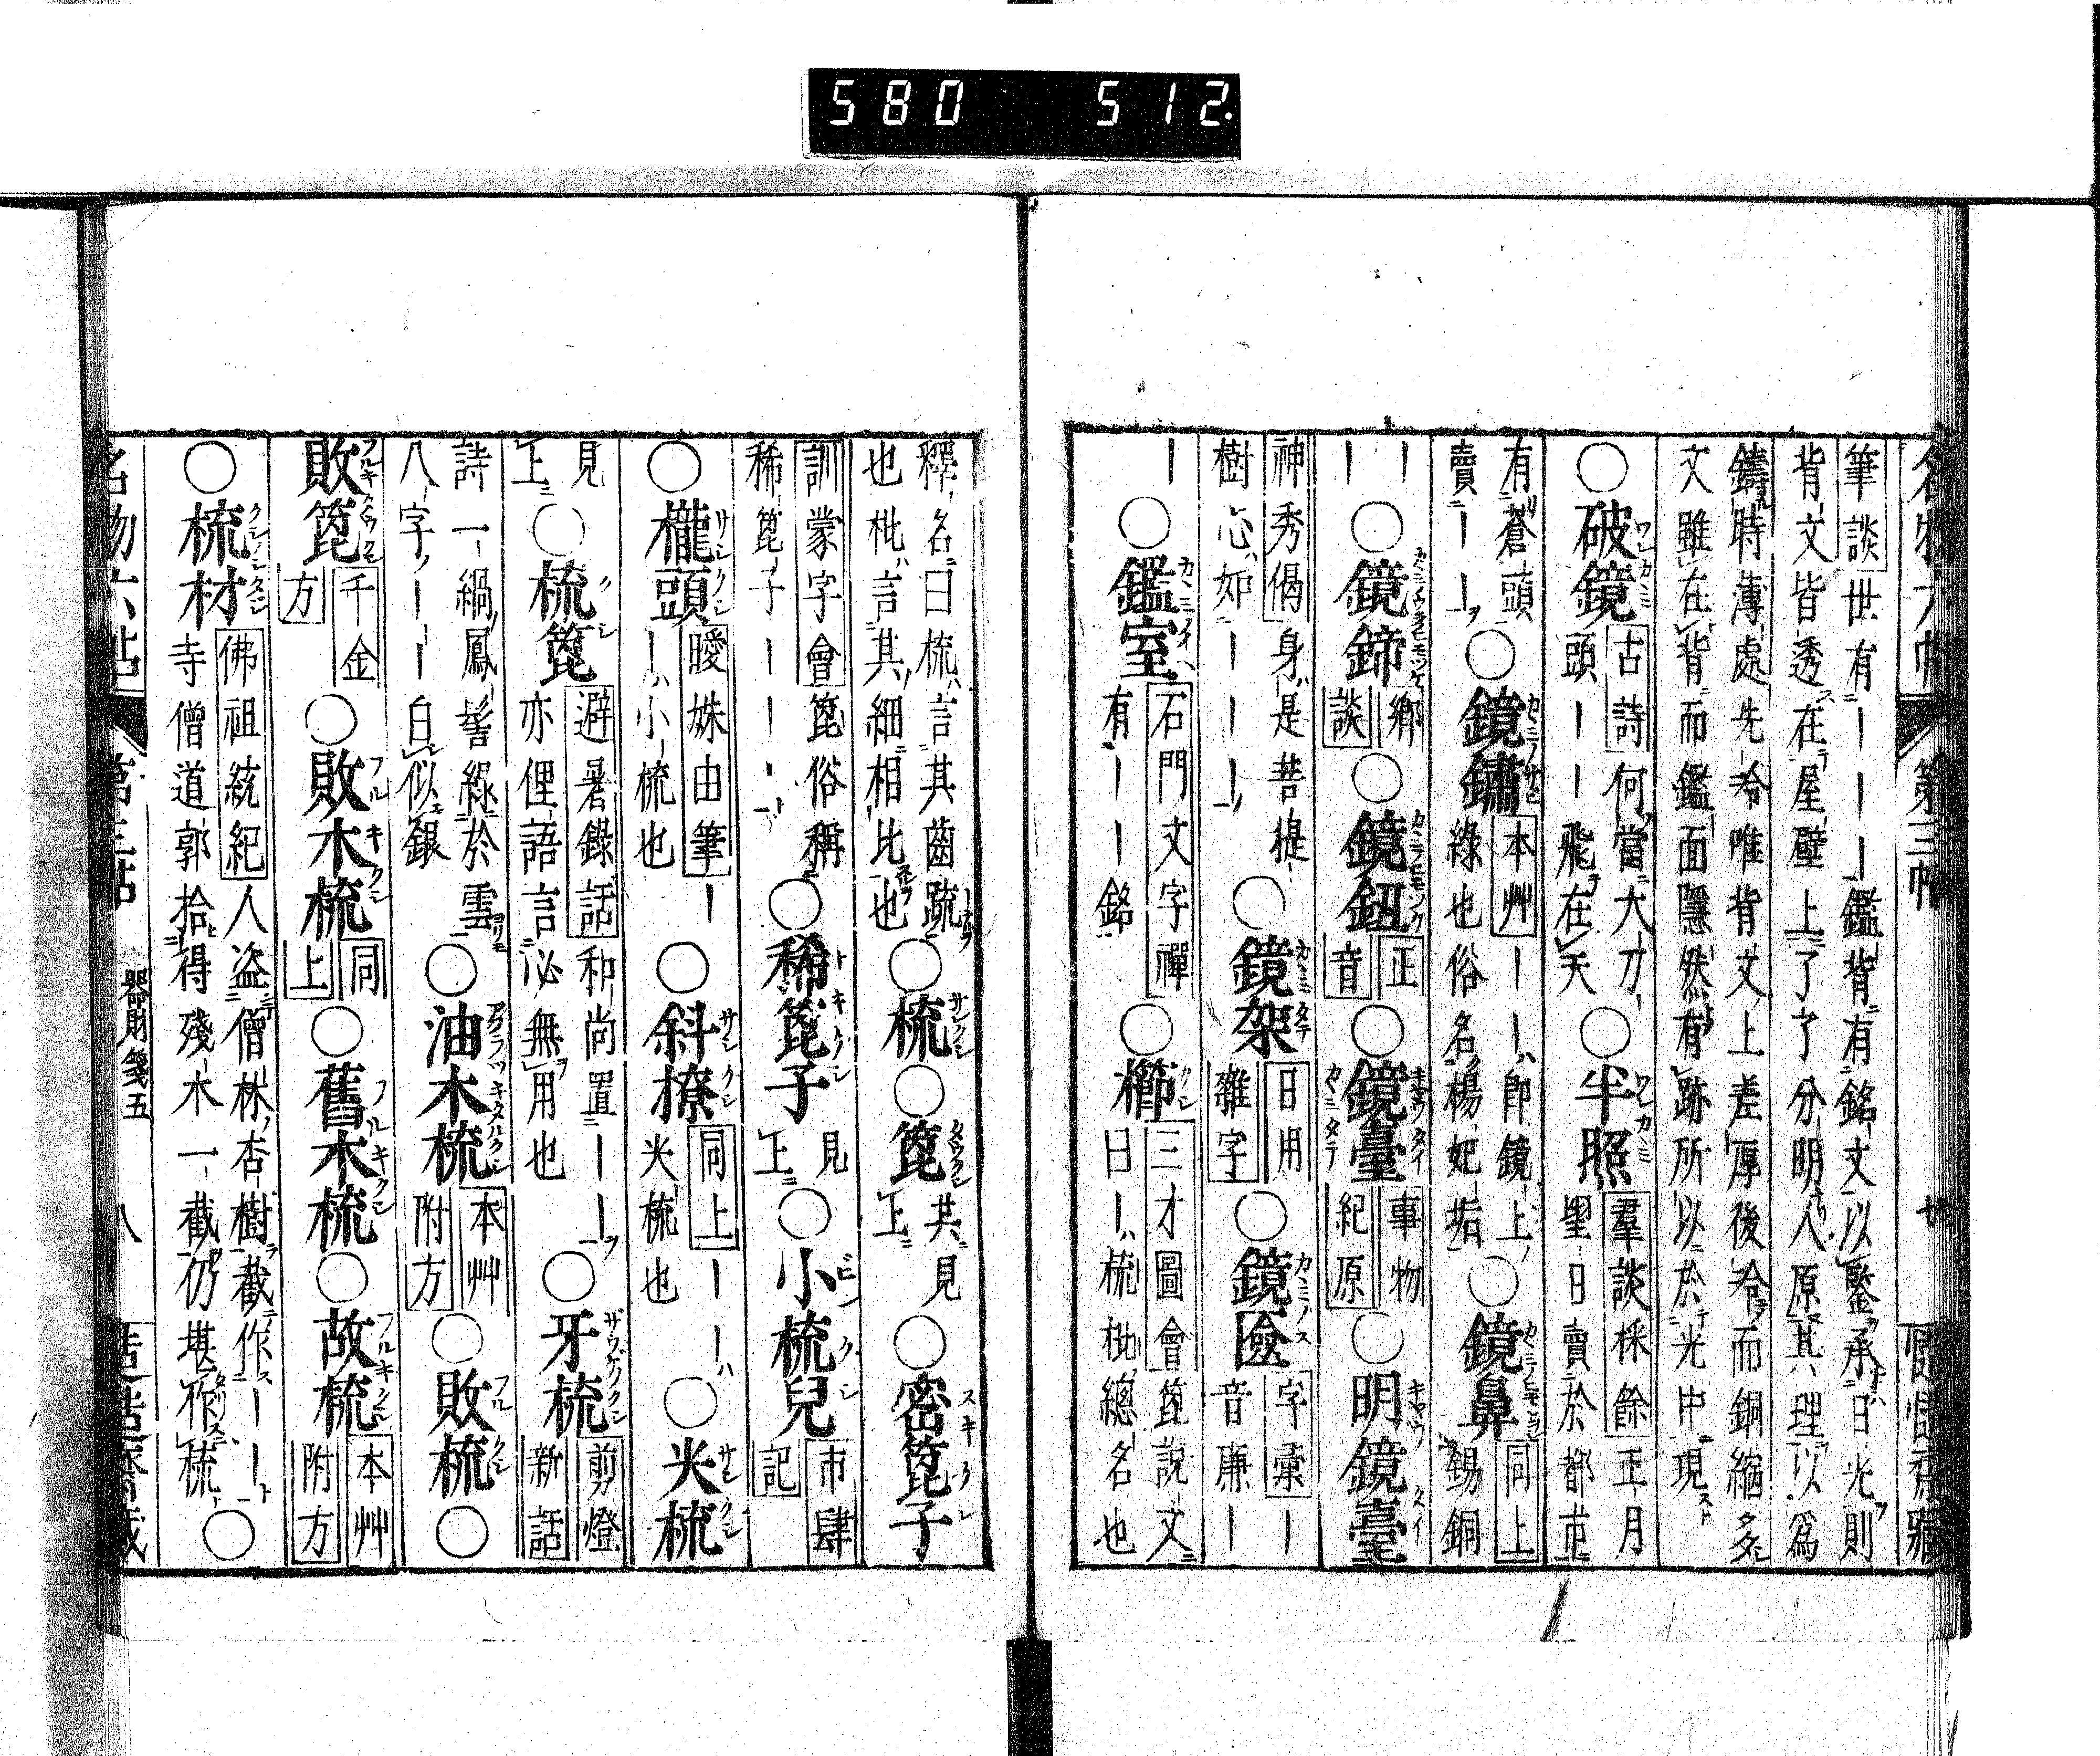 580 512.
筆談世有｜｜｜鑑背有銘文以鑒承日光則
背文皆透在屋壁上了了分明人原其理以為
鑄時薄處先冷唯背文上差厚後冷而銅縮多
文雖在背而鑑面隱然有跡所以於光中現
○破鏡 古詩何當大刀頭｜｜飛在天 ○半照 羣談採餘正月望日賣於都市
有蒼頭賣｜｜ ○鏡鏽 本艸｜｜即鏡上綠也俗名楊妃垢 ○鏡鼻 同上錫銅
｜｜ ○鏡鍗 鄉談 ○鏡鈕 正音 ○鏡臺 事物紀原 ○明鏡臺
神秀偈身是菩提樹心如｜｜｜ ○鏡架 日用雜字 ○鏡匳 字彙｜音廉｜
｜ ○鑑室 石門文字禪有｜｜銘 ○櫛 三才圖會篦說文曰｜梳枇總名也
釋名曰梳言其齒疏也枇言其細相比也 ○梳 ○篦 共見上 ○密篦子
訓蒙字會篦俗稱稀篦子｜｜｜ ○稀篦子 見上 ○小梳兒 市肆記
○櫳頭 曖姝由筆｜｜小梳也 ○斜撩 同上｜｜夾梳也 ○夾梳
見上 ○梳篦 避暑錄話和尚置｜｜亦俚語言必無用也 ○牙梳 剪燈新話
詩一緺鳳髻綠於雲八字｜｜白似銀 ○油木梳 本艸附方 ○敗梳 ○
敗篦 千金方 ○敗木梳 同上 ○舊木梳 ○故梳 本艸附方
○梳材 佛祖統紀人盜僧林杏樹截作｜｜寺僧道郭拾得殘木一截仍堪作梳 ○
器財箋五 八